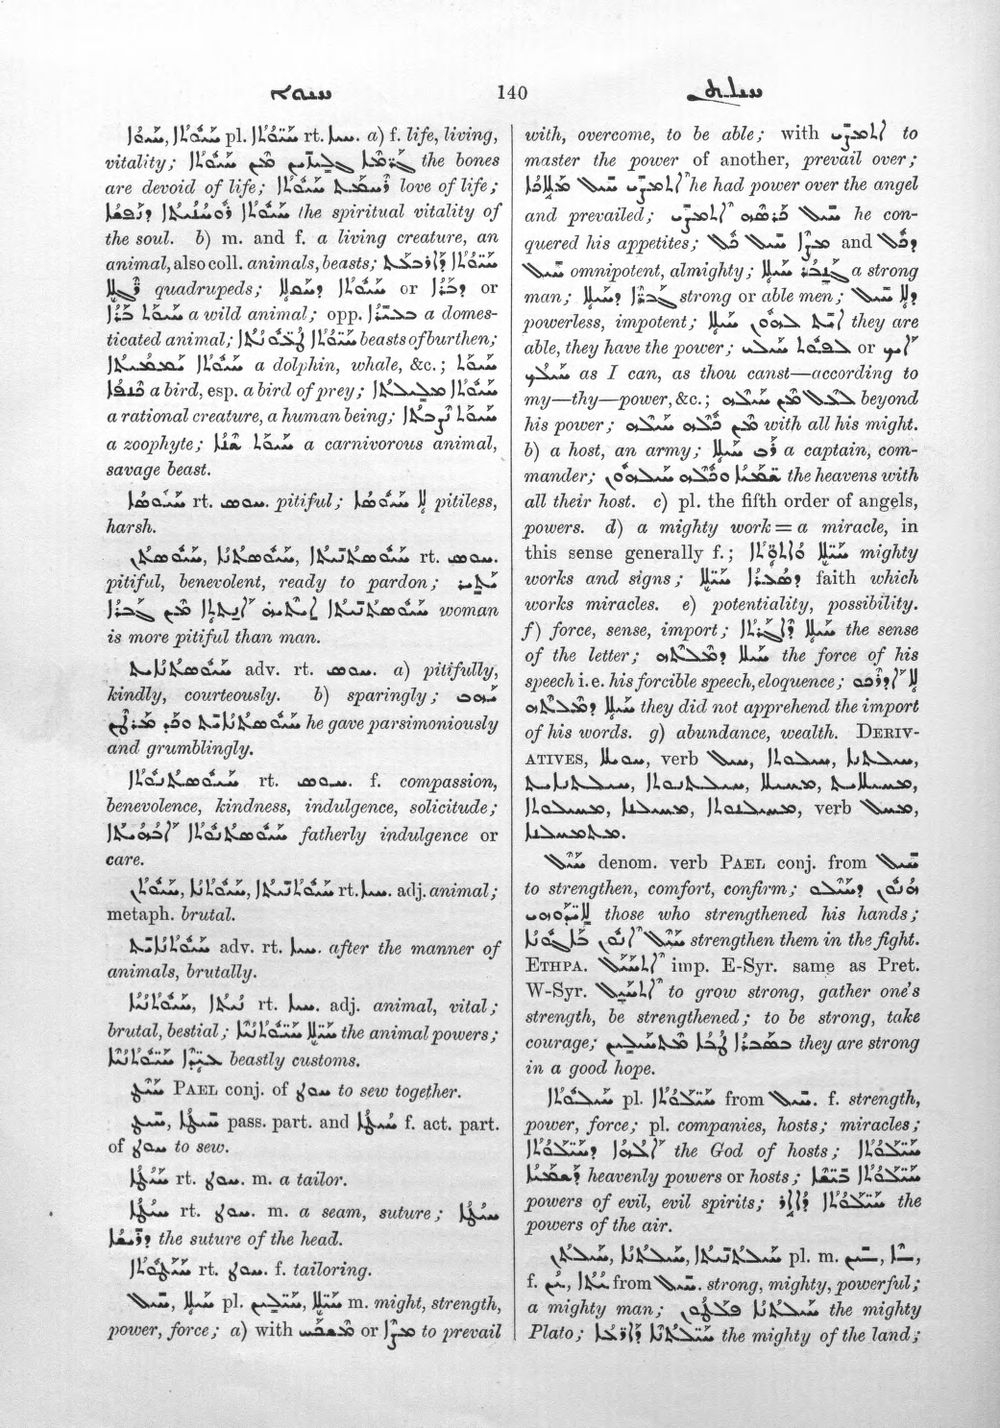 ܚܝܘܬܐ 140 ܚܝܠܬܢ
ܚܝܘܬܐ pl. rt. ܚܝܐ. a) f. life, living,
vitality; ܓܪܡܐ ܓܠܝܙܝܢ ܡܢ ܚܝܘܬܐ the bones
are devoid of life; ܪܚܡܬ ܚܝܘܬܐ love of life;
ܚܝܘܬܐ ܪܘܚܢܝܬܐ ܕܢܦܫܐ the spiritual vitality of
the soul. b) m. and f. a living creature, an
animal, also coll. animals, beasts; ܚܝܘܬܐ ܕܐܪܒܥ
ܪܓܠܐ quadrupeds; ܚܝܘܬܐ or ܕܒܪܐ or
ܚܝܘܬ ܒܪܐ a wild animal; opp. ܒܥܝܪܐ a domes-
ticated animal; ܚܝܘܬܐ beasts of burthen;
ܚܝܘܬܐ ܝܡܝܬܐ a dolphin, whale, &c.; ܚܝܘܬ
ܟܢܦܐ a bird, esp. a bird of prey; ܚܝܘܬܐ ܡܠܝܠܬܐ
a rational creature, a human being; ܚܝܘܬ ܢܨܒܬܐ
a zoophyte; ܚܝܘܬ ܫܢܐ a carnivorous animal,
savage beast.
ܚܝܘܣܐ rt. ܚܘܣ. pitiful; ܠܐ ܚܝܘܣܐ pitiless,
harsh.
ܚܝܘܣܬܢ, ܚܝܘܣܬܢܐ, ܚܝܘܣܬܢܝܬܐ rt. ܚܘܣ.
pitiful, benevolent, ready to pardon; ܝܬܝܪ
ܚܝܘܣܬܢܝܬܐ ܐܝܬܝܗ ܐܢܬܬܐ ܡܢ ܓܒܪܐ woman
is more pitiful than man.
ܚܝܘܣܬܢܐܝܬ adv. rt. ܚܘܣ. a) pitifully,
kindly, courteously. b) sparingly; ܝܗܒ
ܚܝܘܣܬܢܐܝܬ he gave parsimoniously
and grumblingly.
ܚܝܘܣܬܢܘܬܐ rt. ܚܘܣ. f. compassion,
benevolence, kindness, indulgence, solicitude;
ܚܝܘܣܬܢܘܬܐ ܐܒܗܝܬܐ fatherly indulgence or
care.
ܚܝܘܬܢ, ܚܝܘܬܢܐ, ܚܝܘܬܢܝܬܐ rt. ܚܝܐ. adj. animal;
metaph. brutal.
ܚܝܘܬܢܐܝܬ adv. rt. ܚܝܐ. after the manner of
animals, brutally.
ܚܝܘܬܢܝܐ, ܢܝܬܐ rt. ܚܝܐ. adj. animal, vital;
brutal, bestial; ܚܝܠܐ ܚܝܘܬܢܝܐ the animal powers;
ܥܝܕܐ ܚܝܘܬܢܝܐ beastly customs.
ܚܝܛ PAEL conj. of ܚܘܛ to sew together.
ܚܝܛ, ܚܝܛܐ pass. part. and ܚܝܛܐ f. act. part.
of ܚܘܛ to sew.
ܚܝܛܐ rt. ܚܘܛ. m. a tailor.
ܚܝܛܐ rt. ܚܘܛ. m. a seam, suture; ܚܝܛܐ
ܕܪܝܫܐ the suture of the head.
ܚܝܛܘܬܐ rt. ܚܘܛ. f. tailoring.
ܚܝܠ, ܚܝܠܐ pl. ܚܝܠܝܢ, ܚܝܠܐ m. might, strength,
power, force; a) with or ܡܨܐ to prevail
with, overcome, to be able; with ܐܬܡܨܝ to
master the power of another, prevail over;
ܐܬܡܨܝ ܚܝܠ ܡܠܐܟܐ he had power over the angel
and prevailed; ܐܬܡܨܝ ܚܝܠ ܟܪܣܗ he con-
quered his appetites; ܡܨܐ ܚܝܠ ܟܠ and ܕܟܠ
ܚܝܠ omnipotent, almighty; ܓܢܒܪ ܚܝܠܐ a strong
man; ܓܒܪܐ ܕܚܝܠܐ strong or able men; ܕܠܐ ܚܝܠ
powerless, impotent; ܐܝܬ ܠܗܘܢ ܚܝܠܐ they are
able, they have the power; ܠܦܘܬ ܚܝܠܝ or ܐܝܟ
ܚܝܠܟ as I can, as thou canst—according to
my—thy—power, &c.; ܠܥܠ ܡܢ ܚܝܠܗ beyond
his power; ܡܢ ܟܠܗ ܚܝܠܗ with all his might.
b) a host, an army; ܪܒ ܚܝܠܐ a captain, com-
mander; ܫܡܝܐ ܘܟܠܗ ܚܝܠܗܘܢ the heavens with
all their host. c) pl. the fifth order of angels,
powers. d) a mighty work = a miracle, in
this sense generally f.; ܚܝܠܐ ܘܐܬܘܬܐ mighty
works and signs; ܕܣܥܪܐ ܚܝܠܐ faith which
works miracles. e) potentiality, possibility.
f) force, sense, import; ܚܝܠܐ ܕܐܓܪܬܐ the sense
of the letter; ܚܝܠܐ ܕܡܠܬܗ the force of his
speech i.e. his forcible speech, eloquence; ܠܐ ܐܕܪܟܘ
ܚܝܠܐ ܕܡܠܬܗ they did not apprehend the import
of his words. g) abundance, wealth. DERIV-
ATIVES, verb ܚܝܠ, ܚܝܠܘܬܐ, ܚܝܠܬܢܐ,
ܚܝܠܬܢܐܝܬ, ܚܝܠܬܢܘܬܐ, ܡܚܝܠܐ, ܡܚܝܠܐܝܬ,
ܡܚܝܠܘܬܐ, ܡܚܝܠܢܐ, ܡܚܝܠܢܘܬܐ, verb ܡܚܝܠ,
ܡܬܡܚܝܠܢܐ.
ܚܝܠ denom. verb PAEL conj. from ܚܝܠ
to strengthen, comfort, confirm; ܗܢܘܢ ܕܚܝܠܘ
ܐܝܕܘܗܝ those who strengthened his hands;
ܚܝܠ ܐܢܘܢ ܒܐܓܘܢܐ strengthen them in the fight.
ETHPA. ܐܬܚܝܠ imp. E-Syr. same as Pret.
W-Syr. ܐܬܚܝܠ to grow strong, gather one's
strength, be strengthened; to be strong, take
courage; ܒܣܒܪܐ ܛܒܐ ܡܬܚܝܠܝܢ they are strong
in a good hope.
ܚܝܠܘܬܐ pl. ܚܝܠܘܬܐ from ܚܝܠ. f. strength,
power, force; pl. companies, hosts; miracles;
ܐܠܗܐ ܕܚܝܠܘܬܐ the God of hosts; ܚܝܠܘܬܐ
ܕܫܡܝܐ heavenly powers or hosts; ܚܝܠܘܬܐ ܒܝܫܐ
powers of evil, evil spirits; ܚܝܠܘܬܐ ܕܐܐܪ the
powers of the air.
ܚܝܠܬܢ, ܚܝܠܬܢܐ, ܚܝܠܬܢܝܬܐ pl. m. ܢܝܢ, ܢܐ,
f. ܢܝܢ, ܢܝܬܐ from ܚܝܠ. strong, mighty, powerful;
a mighty man; ܚܝܠܬܢܐ ܦܠܛܘܢ the mighty
Plato; ܚܝܠܬܢܐ ܕܐܪܥܐ the mighty of the land;